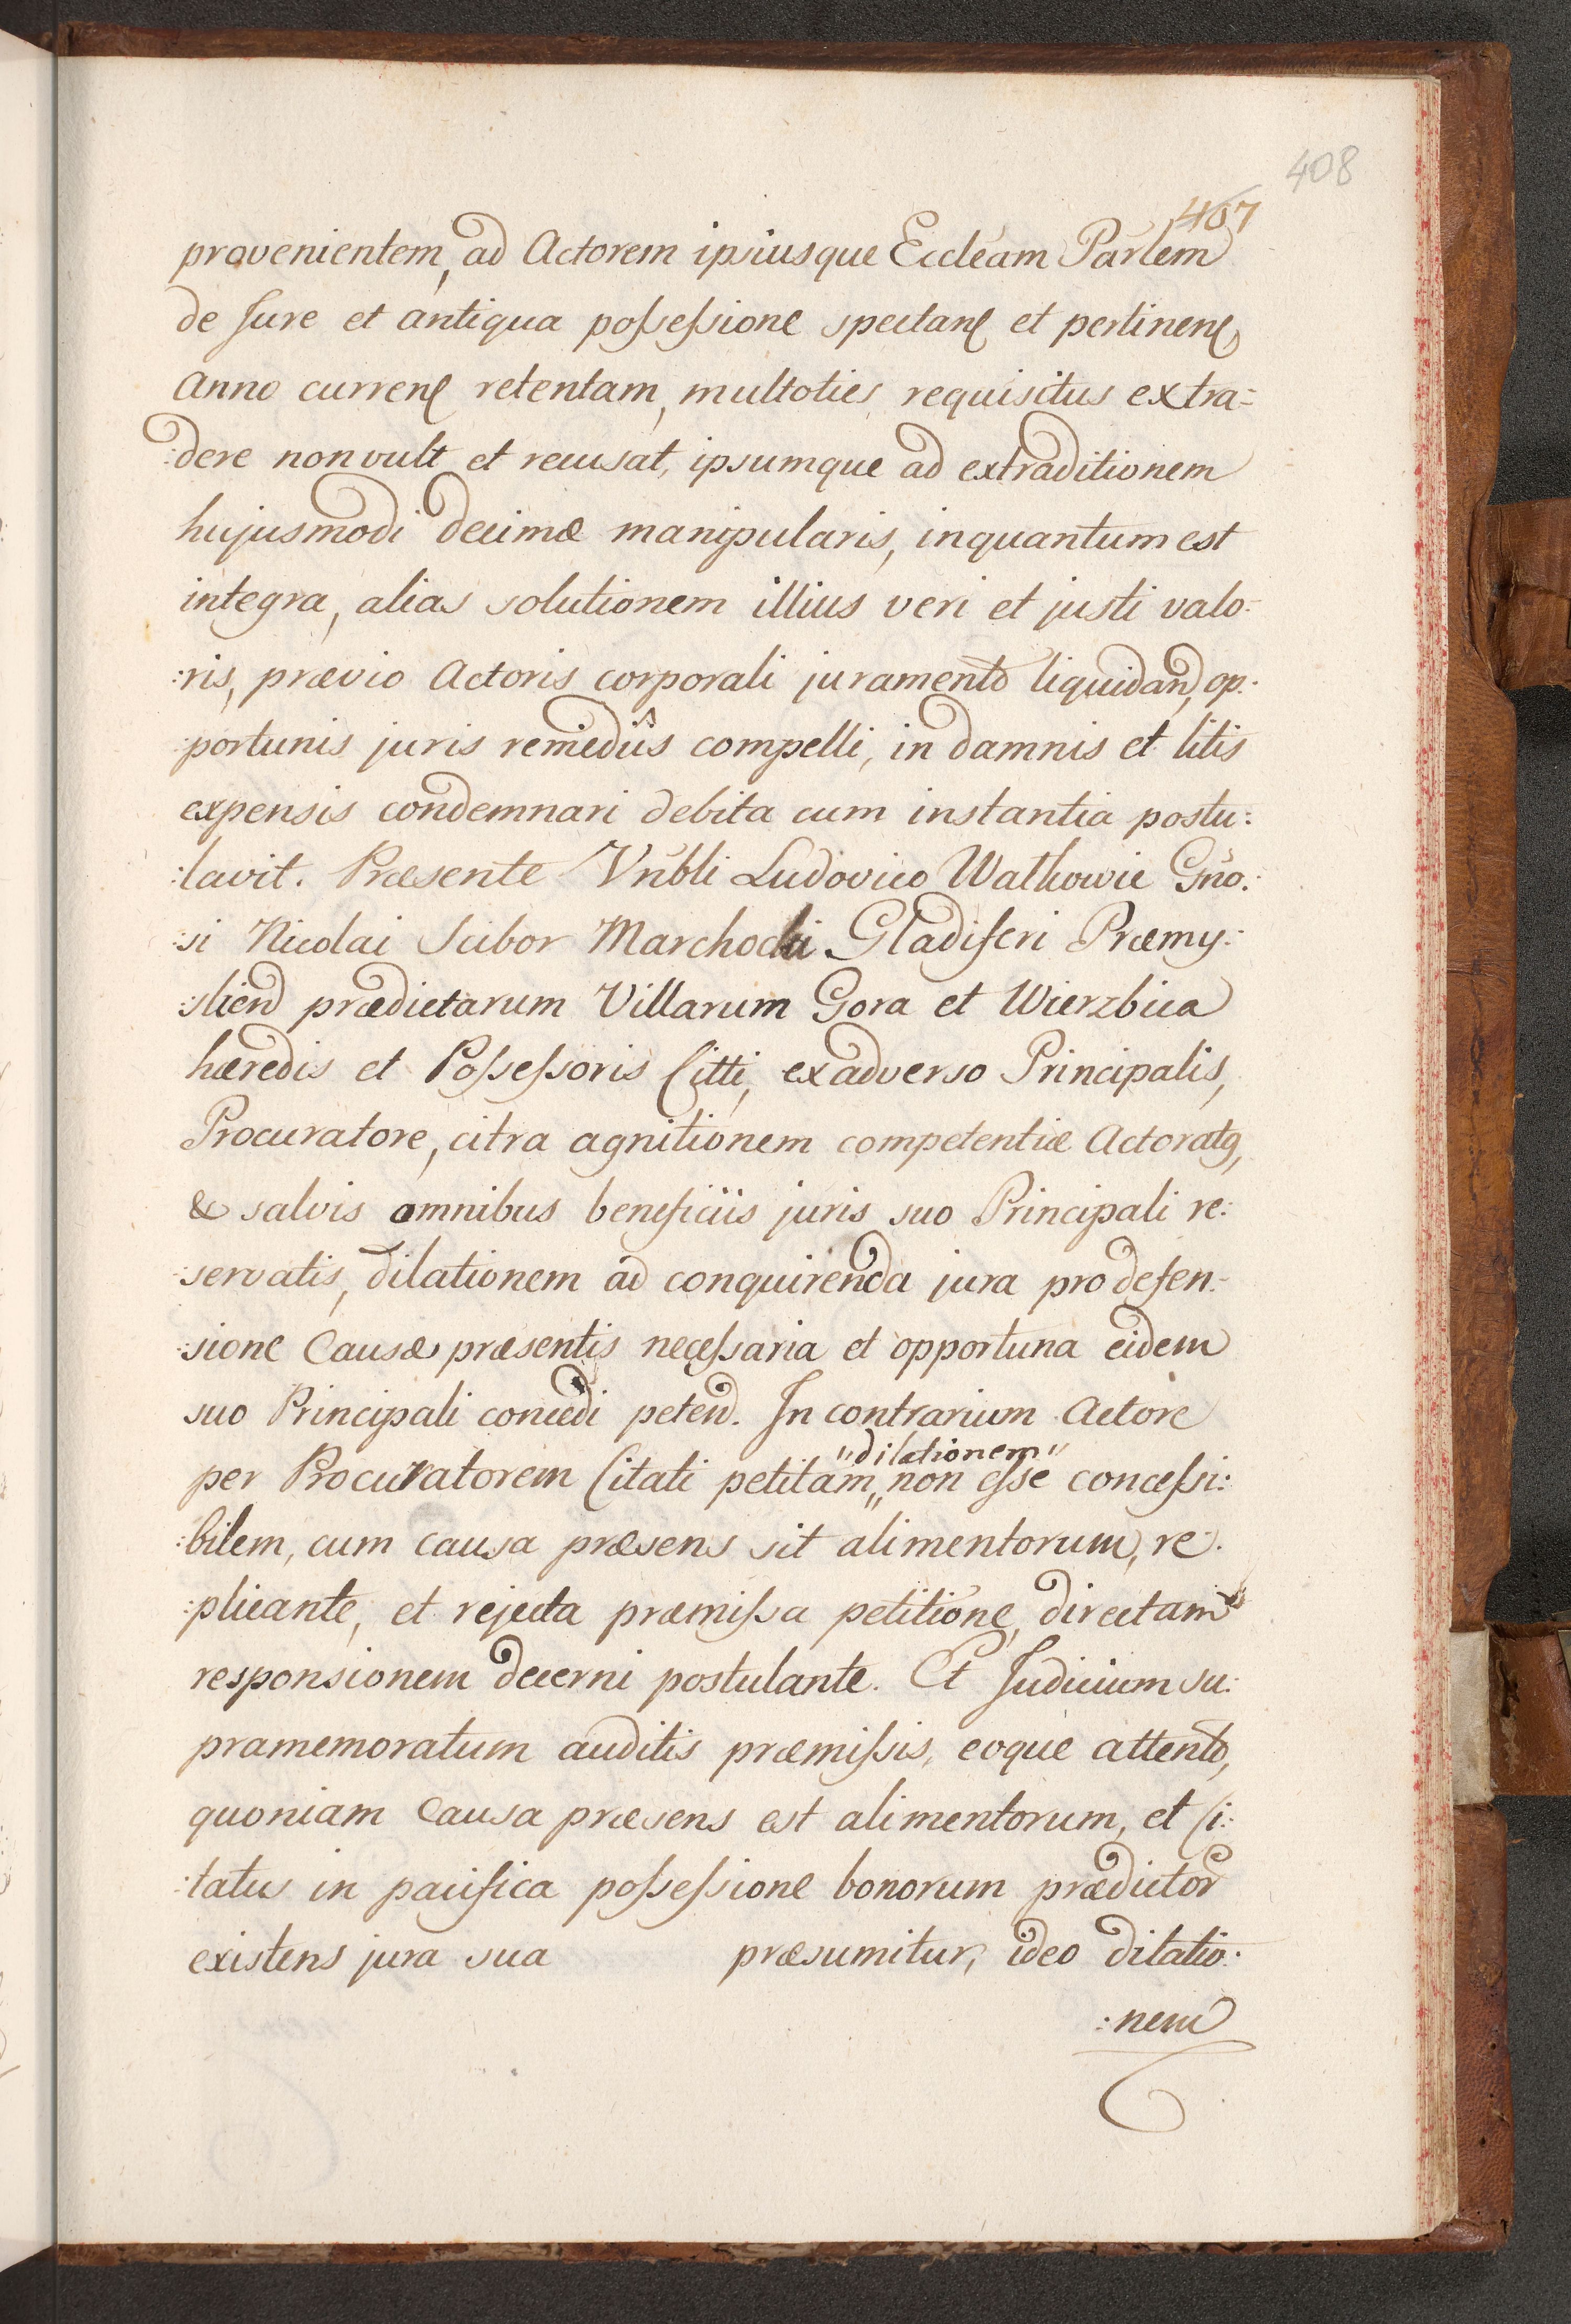 408
407
provenientem, ad Actorem ipsiusque Eccleam Partem
de Jure et antiqua possessione spectan et pertinen,
Anno curren retentam, multoties requisitus extra=
:dere non vult et recusat, ipsumque ad extraditionem
hujusmodi decimæ manipularis, inquantum est
integra, alias solutionem illius veri et justi valo:
:ris, prævio Actoris corporali juramento liquidand, op:
:portunis juris remediis compelli, in damnis et litis
expensis condemnari debita cum instantia postu:
:lavit. Præsente Vnbli Ludovico Walkowic Gno:
:si Nicolai Scibor Marchocki Gladiferi Præmy:
:slien prædictarum Villarum Gora et Wierzbica
hæredis et Possessoris Citti, ex adverso Principalis,
Procuratore, citra agnitionem competentiæ Actoratg,
& salvis omnibus beneficiis juris suo Principali re:
:servatis, dilationem ad conquirenda jura pro defen:
:sione Causæ præsentis necessaria et opportuna eidem
suo Principali concedi peten. In contrarium Actore
"dilationem"
per Procuratorem Citati petitam,, non esse concessi:
:bilem, cum causa præsens sit alimentorum, re:
:plicante, et rejecta præmissa petitione, directam
responsionem decerni postulante. Et Judicium su:
pramemoratum auditis præmissis, eoque attento,
quoniam Causa præsens est alimentorum, et Ci:
:tatus in pacifica possessione bonorum prædictor
existens jura sua præsumitur, ideo dilatio:
:nem